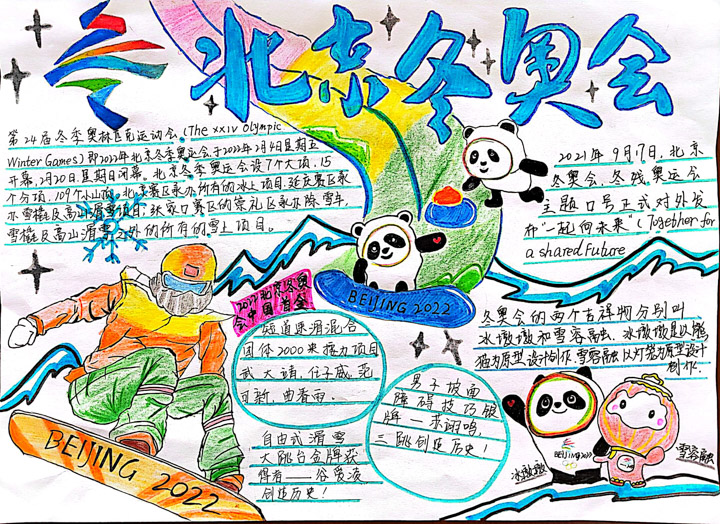 北京冬奥会
第24届冬季奥林匹克运动会(The xxiv olympic
Winter Games)即2022年北京冬季奥运会于2022年2月4日星期五
开幕,2月20日星期日闭幕。北京冬季奥运会设7个大项,15
个分项,109个小项。北京赛区承办所有的冰上项目,延庆赛区承
办雪橇及高山滑雪项目,张家口赛区的崇礼区承办除雪车,
雪橇及高山滑雪之外的所有的雪上项目。
2021年9月17日,北京
冬奥会、冬残奥运会
主题口号正式对外发
布"一起向未来"(Together for
a shared Future
BEIJING 2022
2022北京冬奥
会中国首金
短道速滑混合
团体2000米接力项目
武大靖,任子威,范
可新,曲春雨.
自由式滑雪
大跳台金牌获
得者——谷爱凌
创造历史!
男子坡面
障碍技巧银
牌—苏翊鸣,
三跳创造历史!
冬奥会的两个吉祥物分别叫
冰墩墩和雪容融、冰墩墩是以熊
猫为原型设计创作,雪容融以灯笼为原型设计
创作.
BEIJING 2022
BEIJING 2022
冰墩墩
雪容融